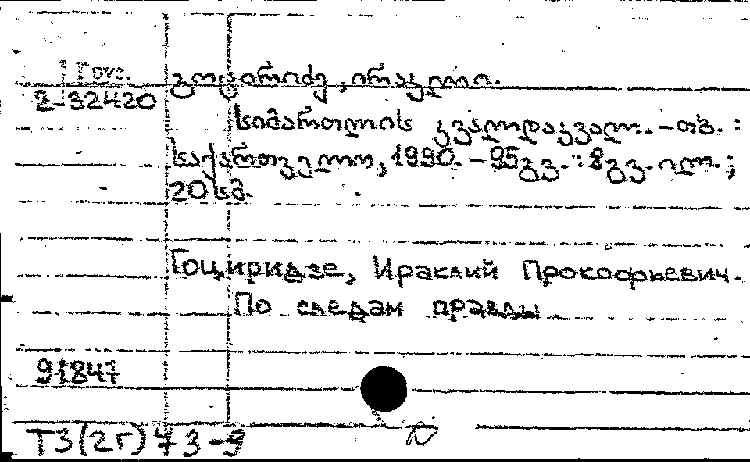 გოცირიძე, ირაკლი.
2-32420
სიმართლის კვალდაკვალ. - თბ. :
საქართველო, 1990. - 95გვ. : 8გვ. ილ. ;
20 სმ.
Гоциридзе, Ираклий Прокофьевич.
По следам правды
91847
Т3(2Г)73-9